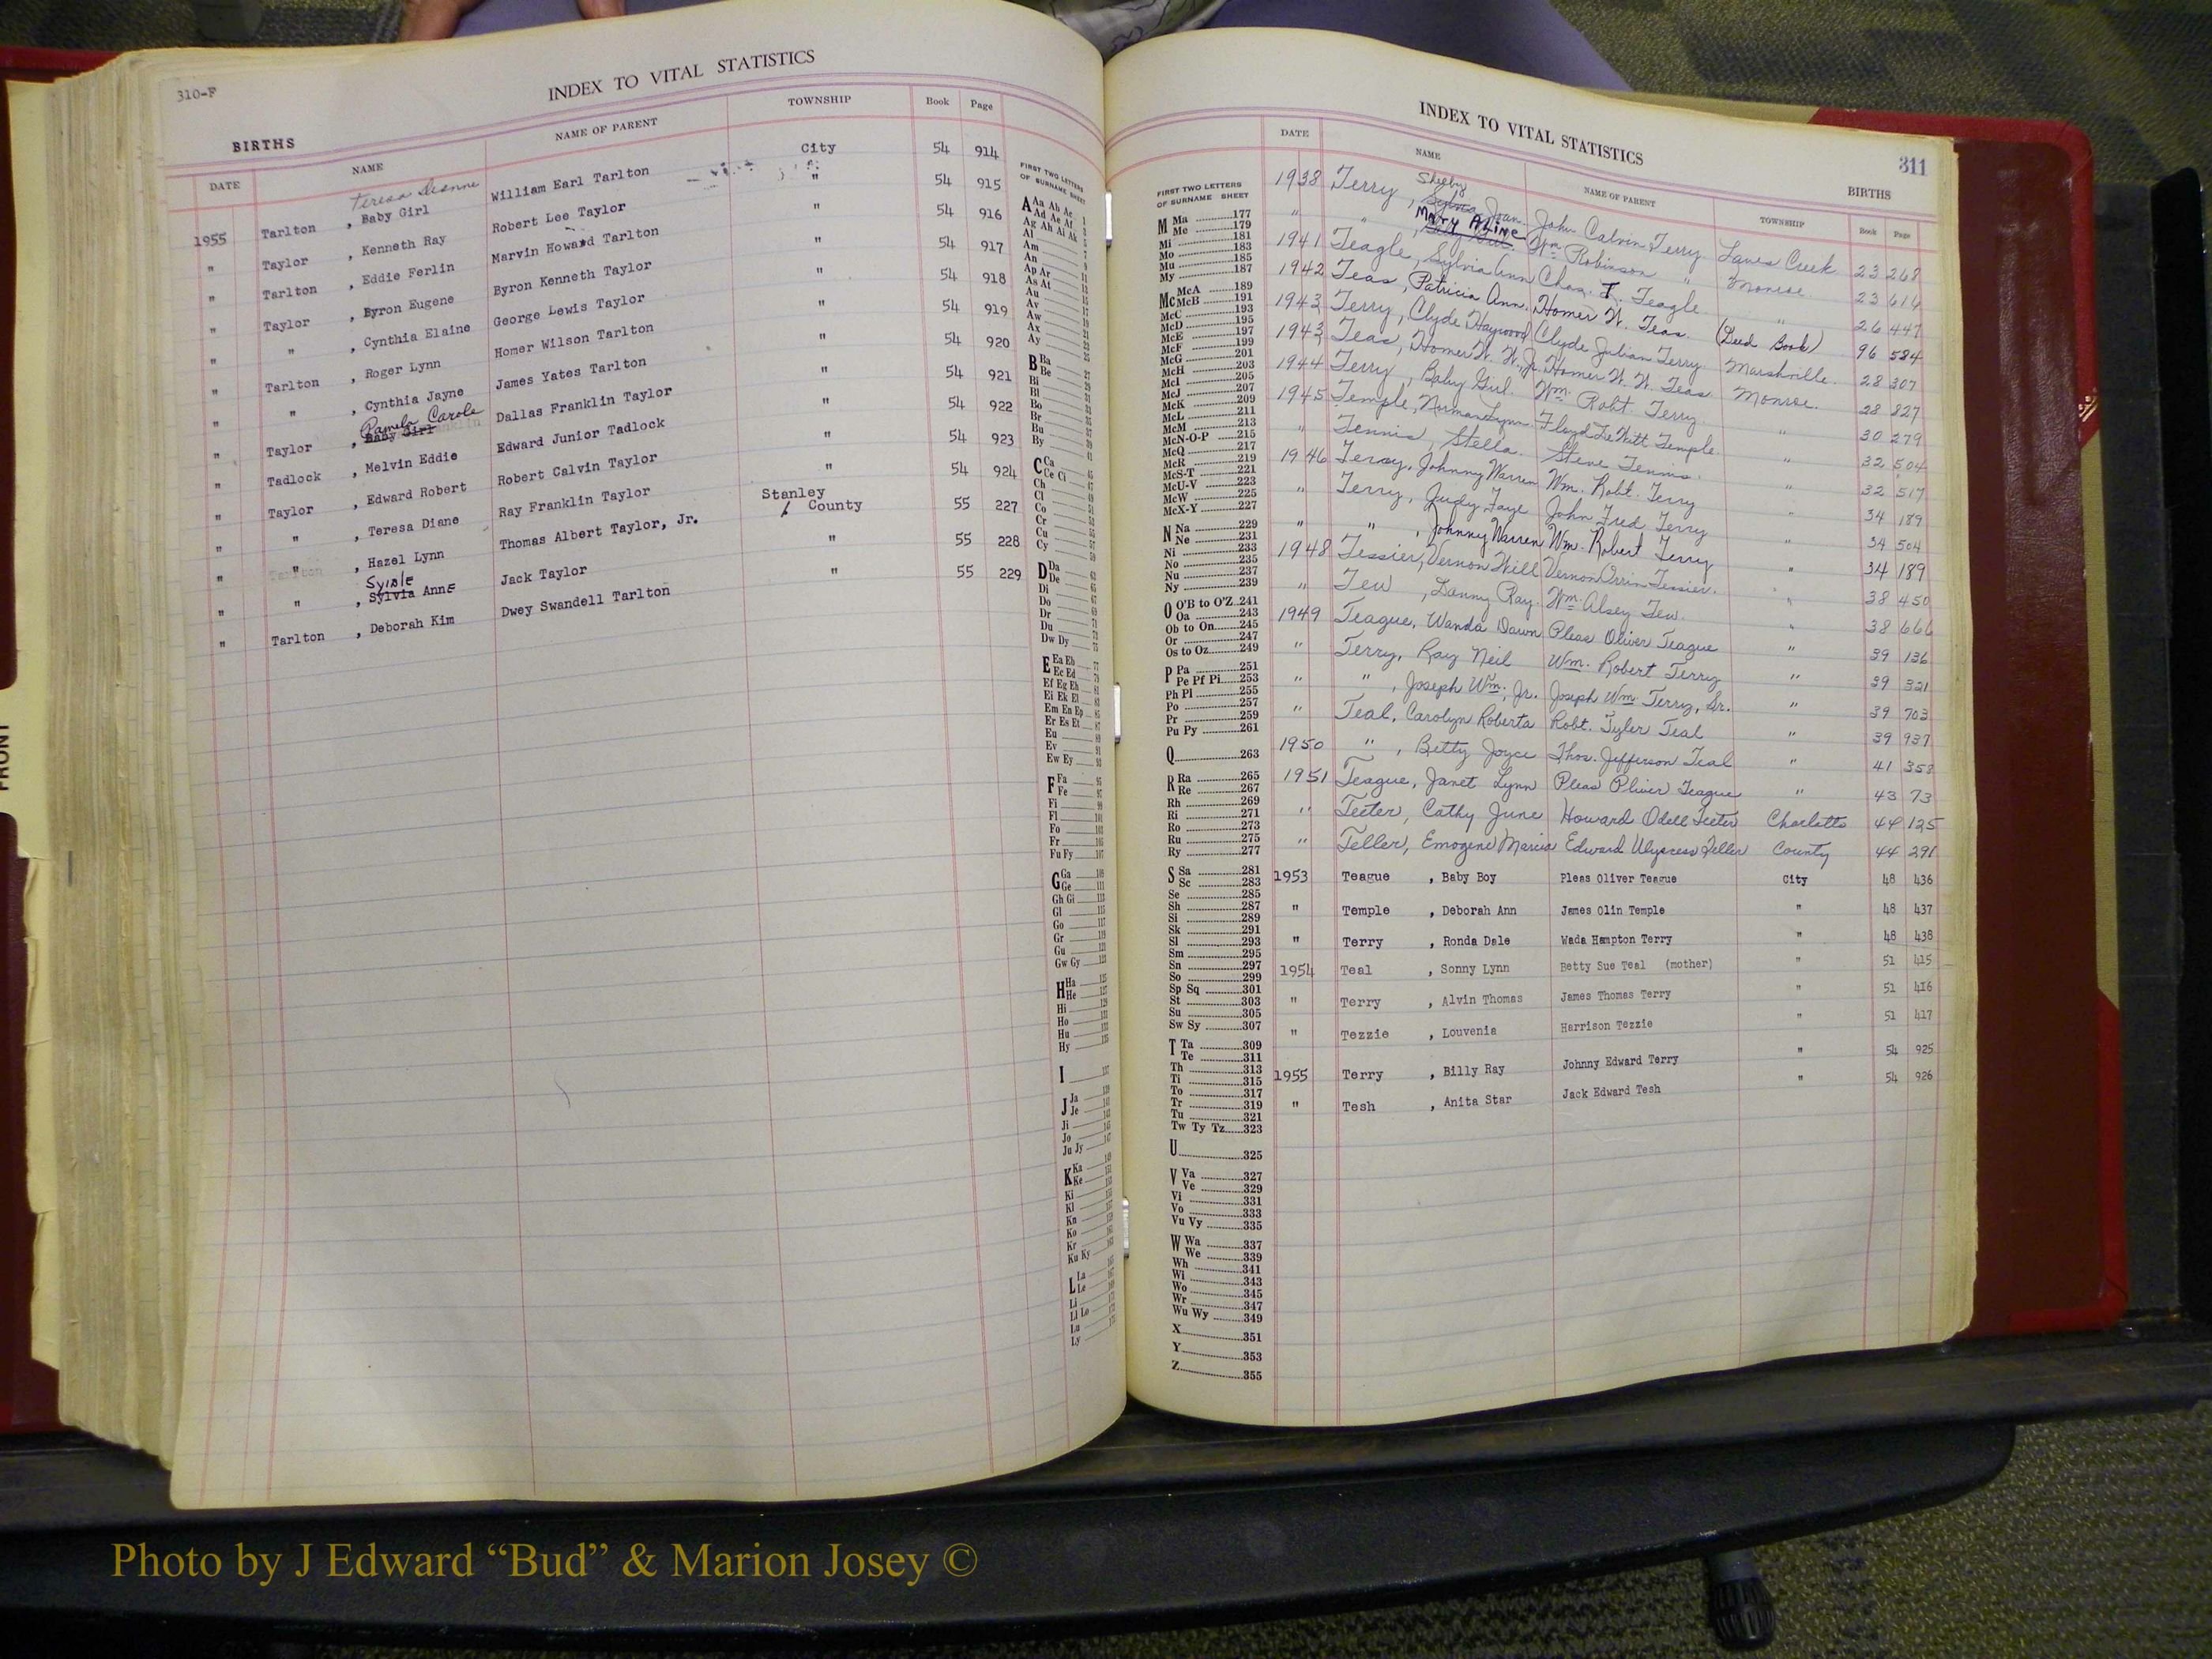 310-F
INDEX TO VITAL STATISTICS
BIRTHS
DATE NAME NAME OF PARENT TOWNSHIP Book Page
Teresa Deanne
1955 Tarlton , Baby Girl William Earl Tarlton City 54 914
" Taylor , Kenneth Ray Robert Lee Taylor " 54 915
" Tarlton , Eddie Ferlin Marvin Howard Tarlton " 54 916
" Taylor , Byron Eugene Byron Kenneth Taylor " 54 917
" " , Cynthia Elaine George Lewis Taylor " 54 918
" Tarlton , Roger Lynn Homer Wilson Tarlton " 54 919
" " , Cynthia Jayne James Yates Tarlton " 54 920
Pamela Carole
" Taylor , Baby Girl Dallas Franklin Taylor " 54 921
" Tadlock , Melvin Eddie Edward Junior Tadlock " 54 922
" Taylor , Edward Robert Robert Calvin Taylor " 54 923
" " , Teresa Diane Ray Franklin Taylor " 54 924
" " , Hazel Lynn Thomas Albert Taylor, Jr. Stanley County 55 227
" " , Sylvia Anne Jack Taylor " 55 228
" Tarlton , Deborah Kim Dwey Swandell Tarlton " 55 229
FIRST TWO LETTERS
OF SURNAME SHEET
A Aa Ab Ac 1
Ad Ae Af
Ag Ah Ai Ak
Al
Am
An
Ap Ar
As At
Au
Av
Aw
Ax
Ay
B Ba
Be
Bi
Bl
Bo
Br
Bu
By
C Ca
Ce Ci
Ch
Cl
Co
Cr
Cu
Cy
D Da
De
Di
Do
Dr
Du
Dw Dy
E Ea Eb
Ec Ed
Ef Eg Eh
Ei Ek El
Em En Ep
Er Es Et
Eu
Ev
Ew Ey
F Fa
Fe
Fi
Fl
Fo
Fr
Fu Fy
G Ga
Ge
Gh Gi
Gl
Go
Gr
Gu
Gw Gy
H Ha
He
Hi
Ho
Hu
Hy
I
J Ja
Je
Ji
Jo
Ju Jy
K Ka
Ke
Ki
Kl
Kn
Ko
Kr
Ku Ky
L La
Le
Li
Ll Lo
Lu
Ly
FRONT
311
INDEX TO VITAL STATISTICS
BIRTHS
DATE NAME NAME OF PARENT TOWNSHIP Book Page
Shelby
1938 Terry, Sylvia Joan John Calvin Terry Lanes Creek 23 268
Mary Aline
" " , Wm. Robinson " Monroe 23 616
1941 Teagle, Sylvia Ann Chas. T. Teagle " 26 447
1942 Teas, Patricia Ann. Homer W. Teas (Deed Book) 96 584
1943 Terry, Clyde Haywood Clyde Julian Terry Marshville. 28 307
1943 Teas, Homer W. W. Jr. Homer W. W. Teas Monroe. 28 827
1944 Terry, Baby Girl. Wm. Robt. Terry " 30 279
1945 Temple, Norman Lynn. Floyd De Witt Temple " 32 504
" Tennis, Stella. Steve Tennis. " 32 517
1946 Terry, Johnny Warren Wm. Robt. Terry " 34 189
" Terry, Judy Faye John Fred Terry " 34 504
" " , Johnny Warren Wm. Robert Terry " 34 189
1948 Tessier, Vernon Will Vernon Orrin Tessier. " 38 450
" Tew , Danny Ray. Wm. Alsey Tew. " 38 666
1949 Teague, Wanda Dawn Pleas Oliver Teague " 39 136
" Terry, Ray Neil Wm. Robert Terry " 39 321
" " , Joseph Wm., Jr. Joseph Wm. Terry, Sr. " 39 703
" Teal, Carolyn Roberta Robt. Tyler Teal " 39 937
1950 " , Betty Joyce Thos. Jefferson Teal " 41 358
1951 Teague, Janet Lynn Pleas Oliver Teague " 43 73
" Teeter, Cathy June Howard Odell Teeter Charlotte 44 125
" Teller, Emogene Marcia Edward Ulyssess Teller County 44 291
1953 Teague , Baby Boy Pleas Oliver Teague City 48 436
" Temple , Deborah Ann James Olin Temple " 48 437
" Terry , Ronda Dale Wada Hampton Terry " 48 438
1954 Teal , Sonny Lynn Betty Sue Teal (mother) " 51 415
" Terry , Alvin Thomas James Thomas Terry " 51 416
" Tezzie , Louvenia Harrison Tezzie " 51 417
1955 Terry , Billy Ray Johnny Edward Terry " 54 925
" Tesh , Anita Star Jack Edward Tesh " 54 926
FIRST TWO LETTERS
OF SURNAME SHEET
M Ma 177
Me 179
Mi 181
Mo 183
Mu 185
My 187
Mc McA 189
McB 191
McC 193
McD 195
McE 197
McF 199
McG 201
McH 203
McI 205
McJ 207
McK 209
McL 211
McM 213
McN-O-P 215
McQ 217
McR 219
McS-T 221
McU-V 223
McW 225
McX-Y 227
N Na 229
Ne 231
Ni 233
No 235
Nu 237
Ny 239
O O'B to O'Z 241
Oa 243
Ob to On 245
Or 247
Os to Oz 249
P Pa 251
Pe Pf Pi 253
Ph Pl 255
Po 257
Pr 259
Pu Py 261
Q 263
R Ra 265
Re 267
Rh 269
Ri 271
Ro 273
Ru 275
Ry 277
S Sa 281
Sc 283
Se 285
Sh 287
Si 289
Sk 291
Sl 293
Sm 295
Sn 297
So 299
Sp Sq 301
St 303
Su 305
Sw Sy 307
T Ta 309
Te 311
Th 313
Ti 315
To 317
Tr 319
Tu 321
Tw Ty Tz 323
U 325
V Va 327
Ve 329
Vi 331
Vo 333
Vu Vy 335
W Wa 337
We 339
Wh 341
Wi 343
Wo 345
Wr 347
Wu Wy 349
X 351
Y 353
Z 355
Photo by J Edward “Bud” & Marion Josey ©